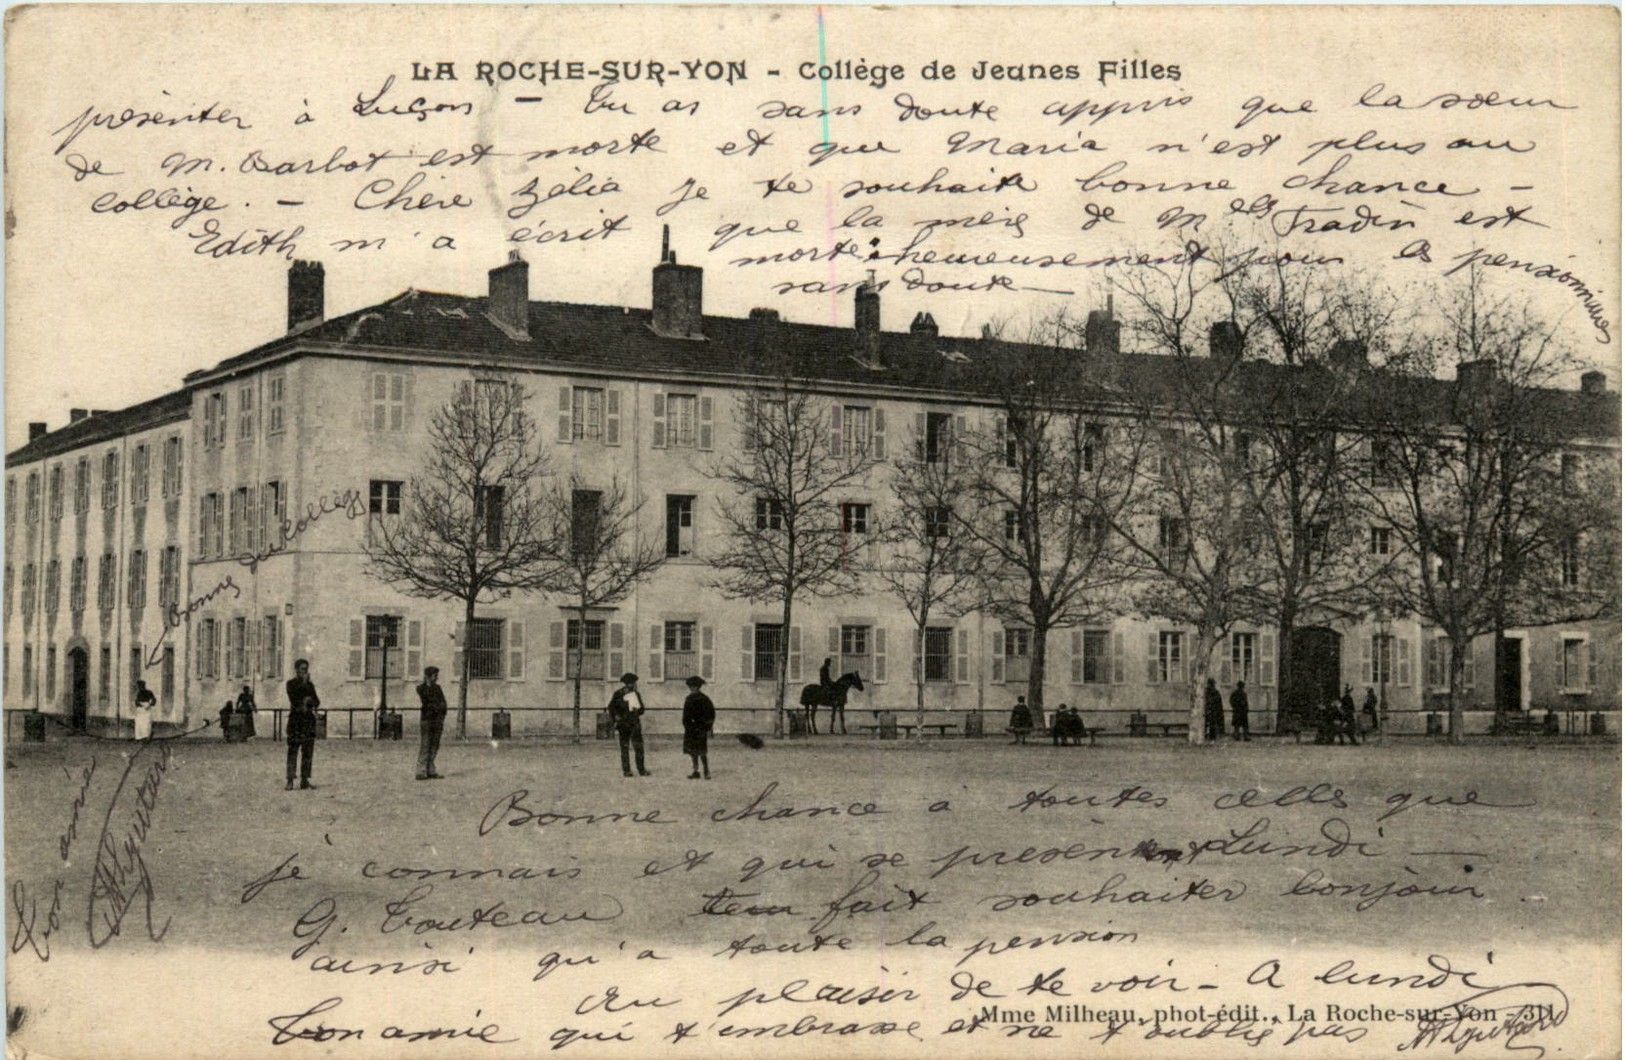 LA ROCHE-SUR-YON - Collège de Jeunes Filles
présenter à Luçon - Tu as sans doute appris que la sœur
de M. Barbot est morte et que Maria n'est plus au
collège. - Chère Zélia je te souhaite bonne chance -
Edith m'a écrit que la mère de M elles Tradin est
morte heureusement pour les pensionnaires
sans doute -
Bonne du Collège
Bonne chance à toutes celles que
je connais et qui se présentent Lundi -
G. Touteau fait souhaiter bonjour
ainsi qu'à toute la pension
Au plaisir de te voir - A lundi
Ton amie qui t'embrasse et ne t'oublie pas
Ton amie
Mme Milheau, phot-édit., La Roche-sur-Yon - 311